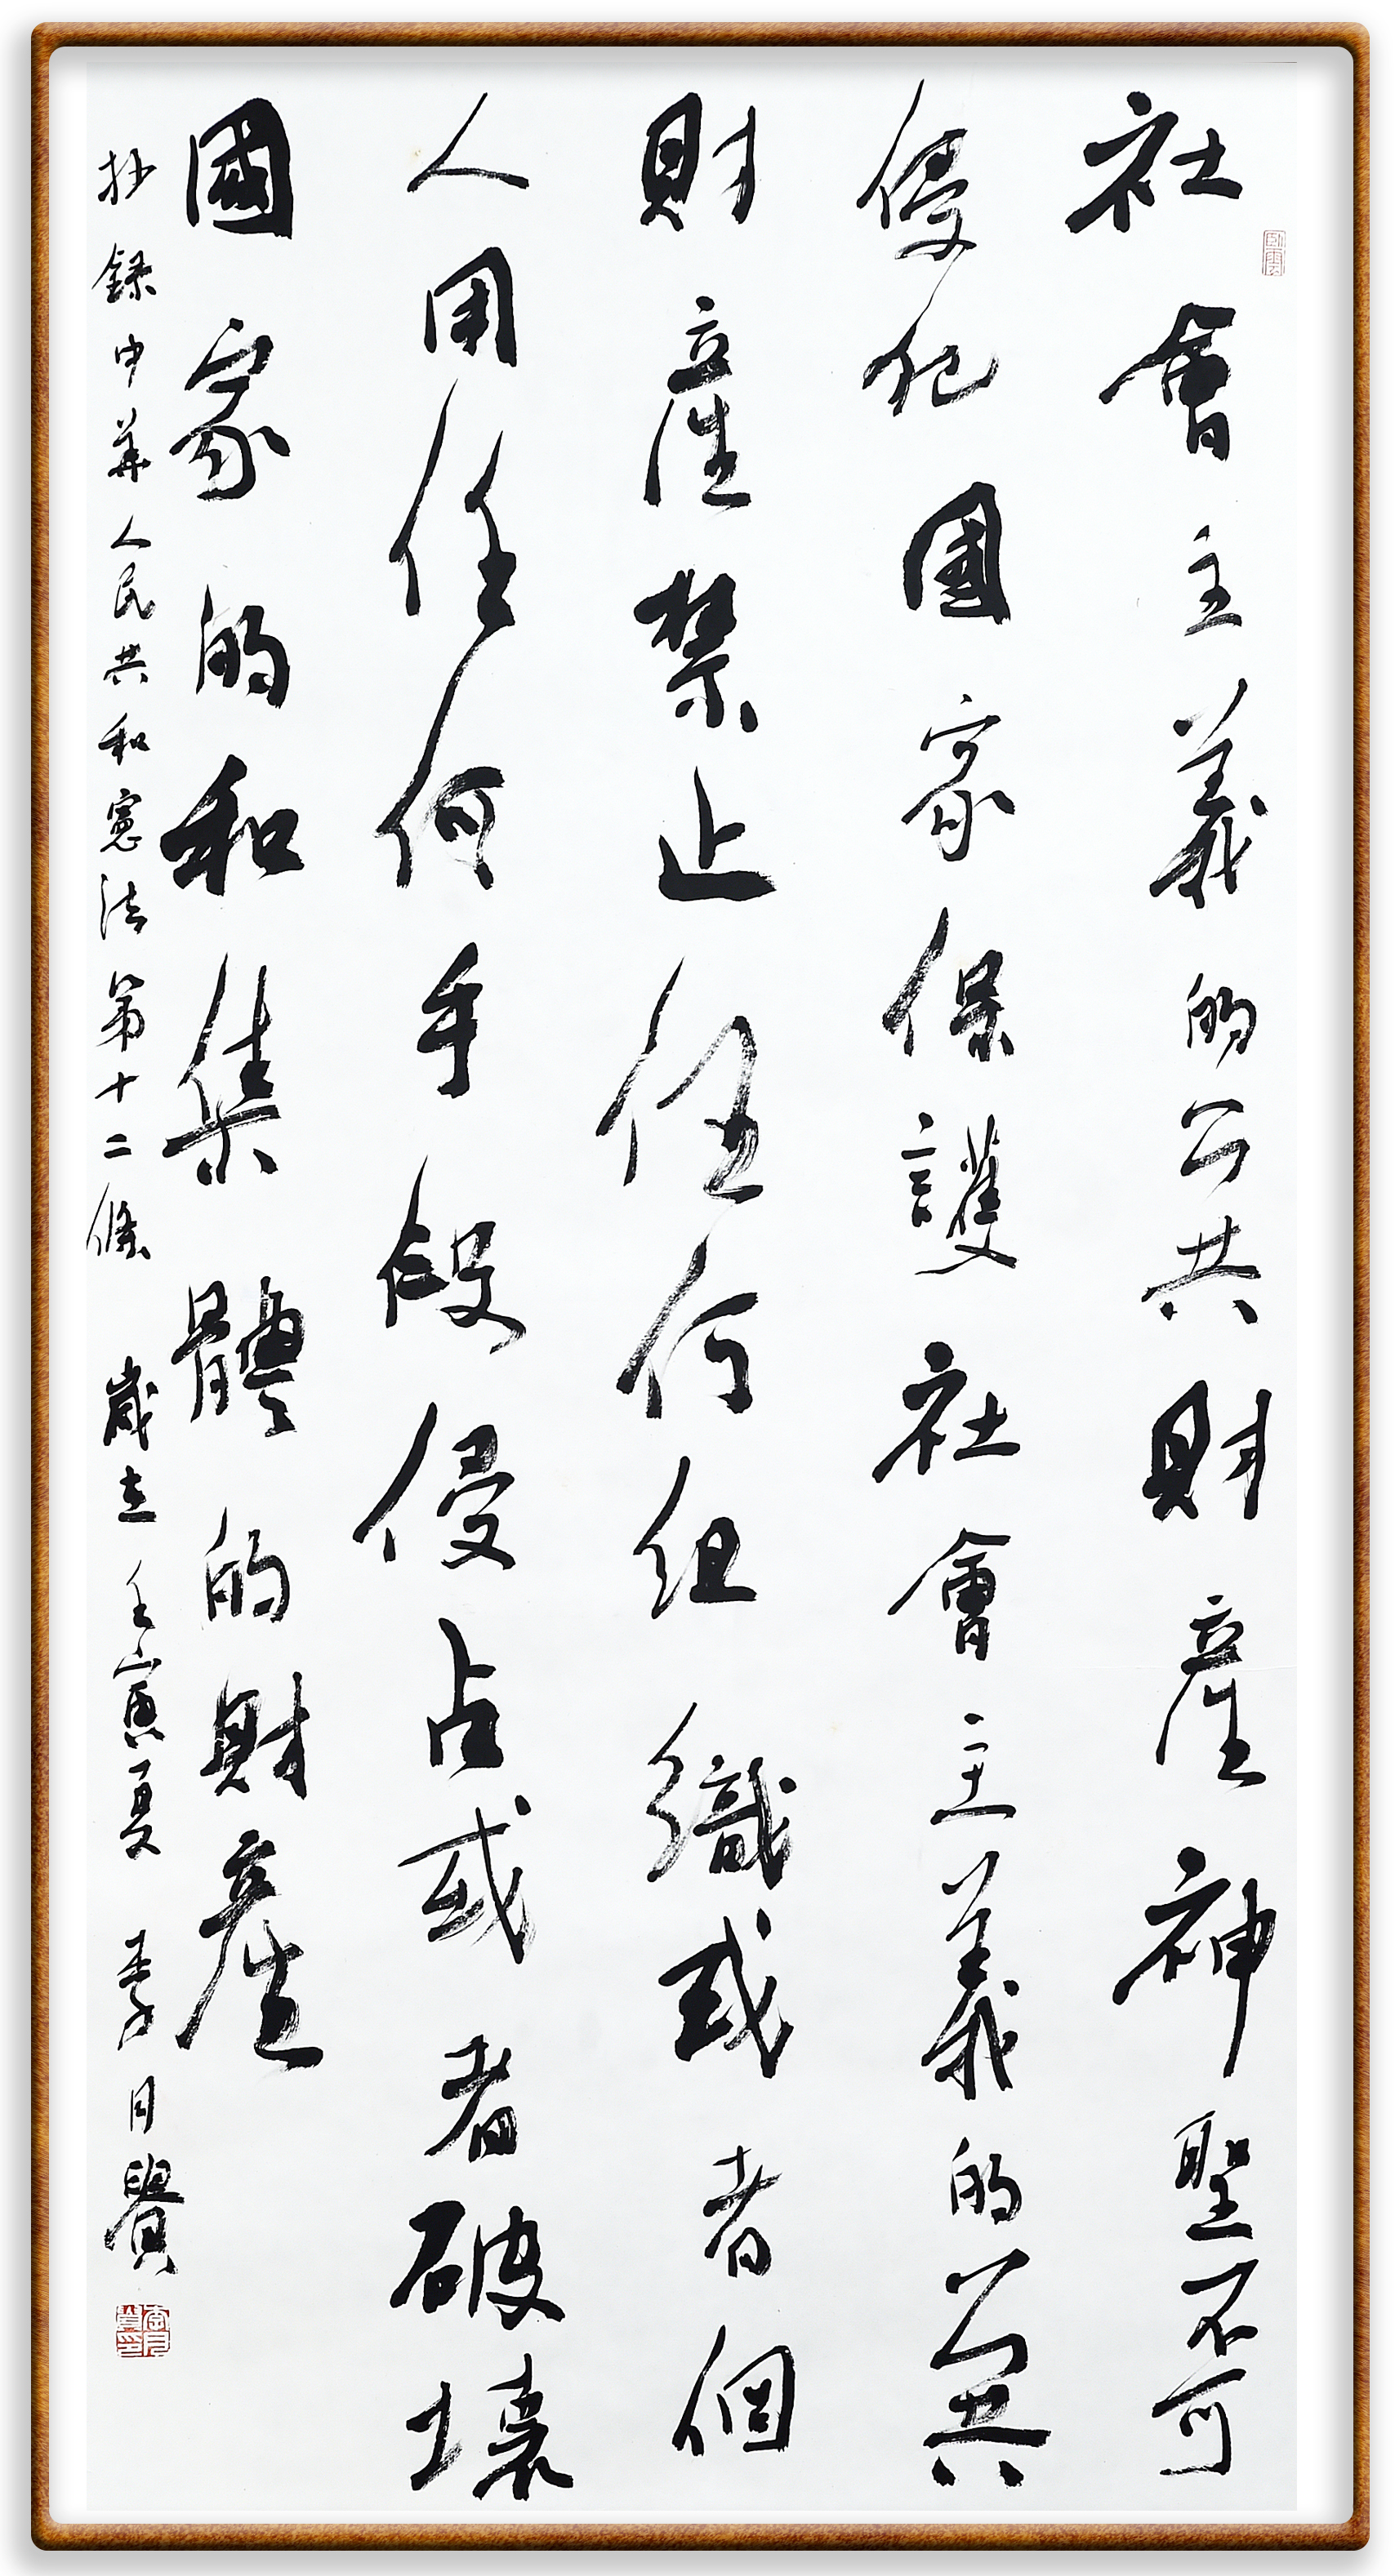 社會主義的公共財產神聖不可
侵犯國家保護社會主義的公共
財產禁止任何組織或者個
人用任何手段侵占或者破壞
國家的和集體的財產
抄錄中華人民共和憲法第十二條 歲在壬寅夏 李月